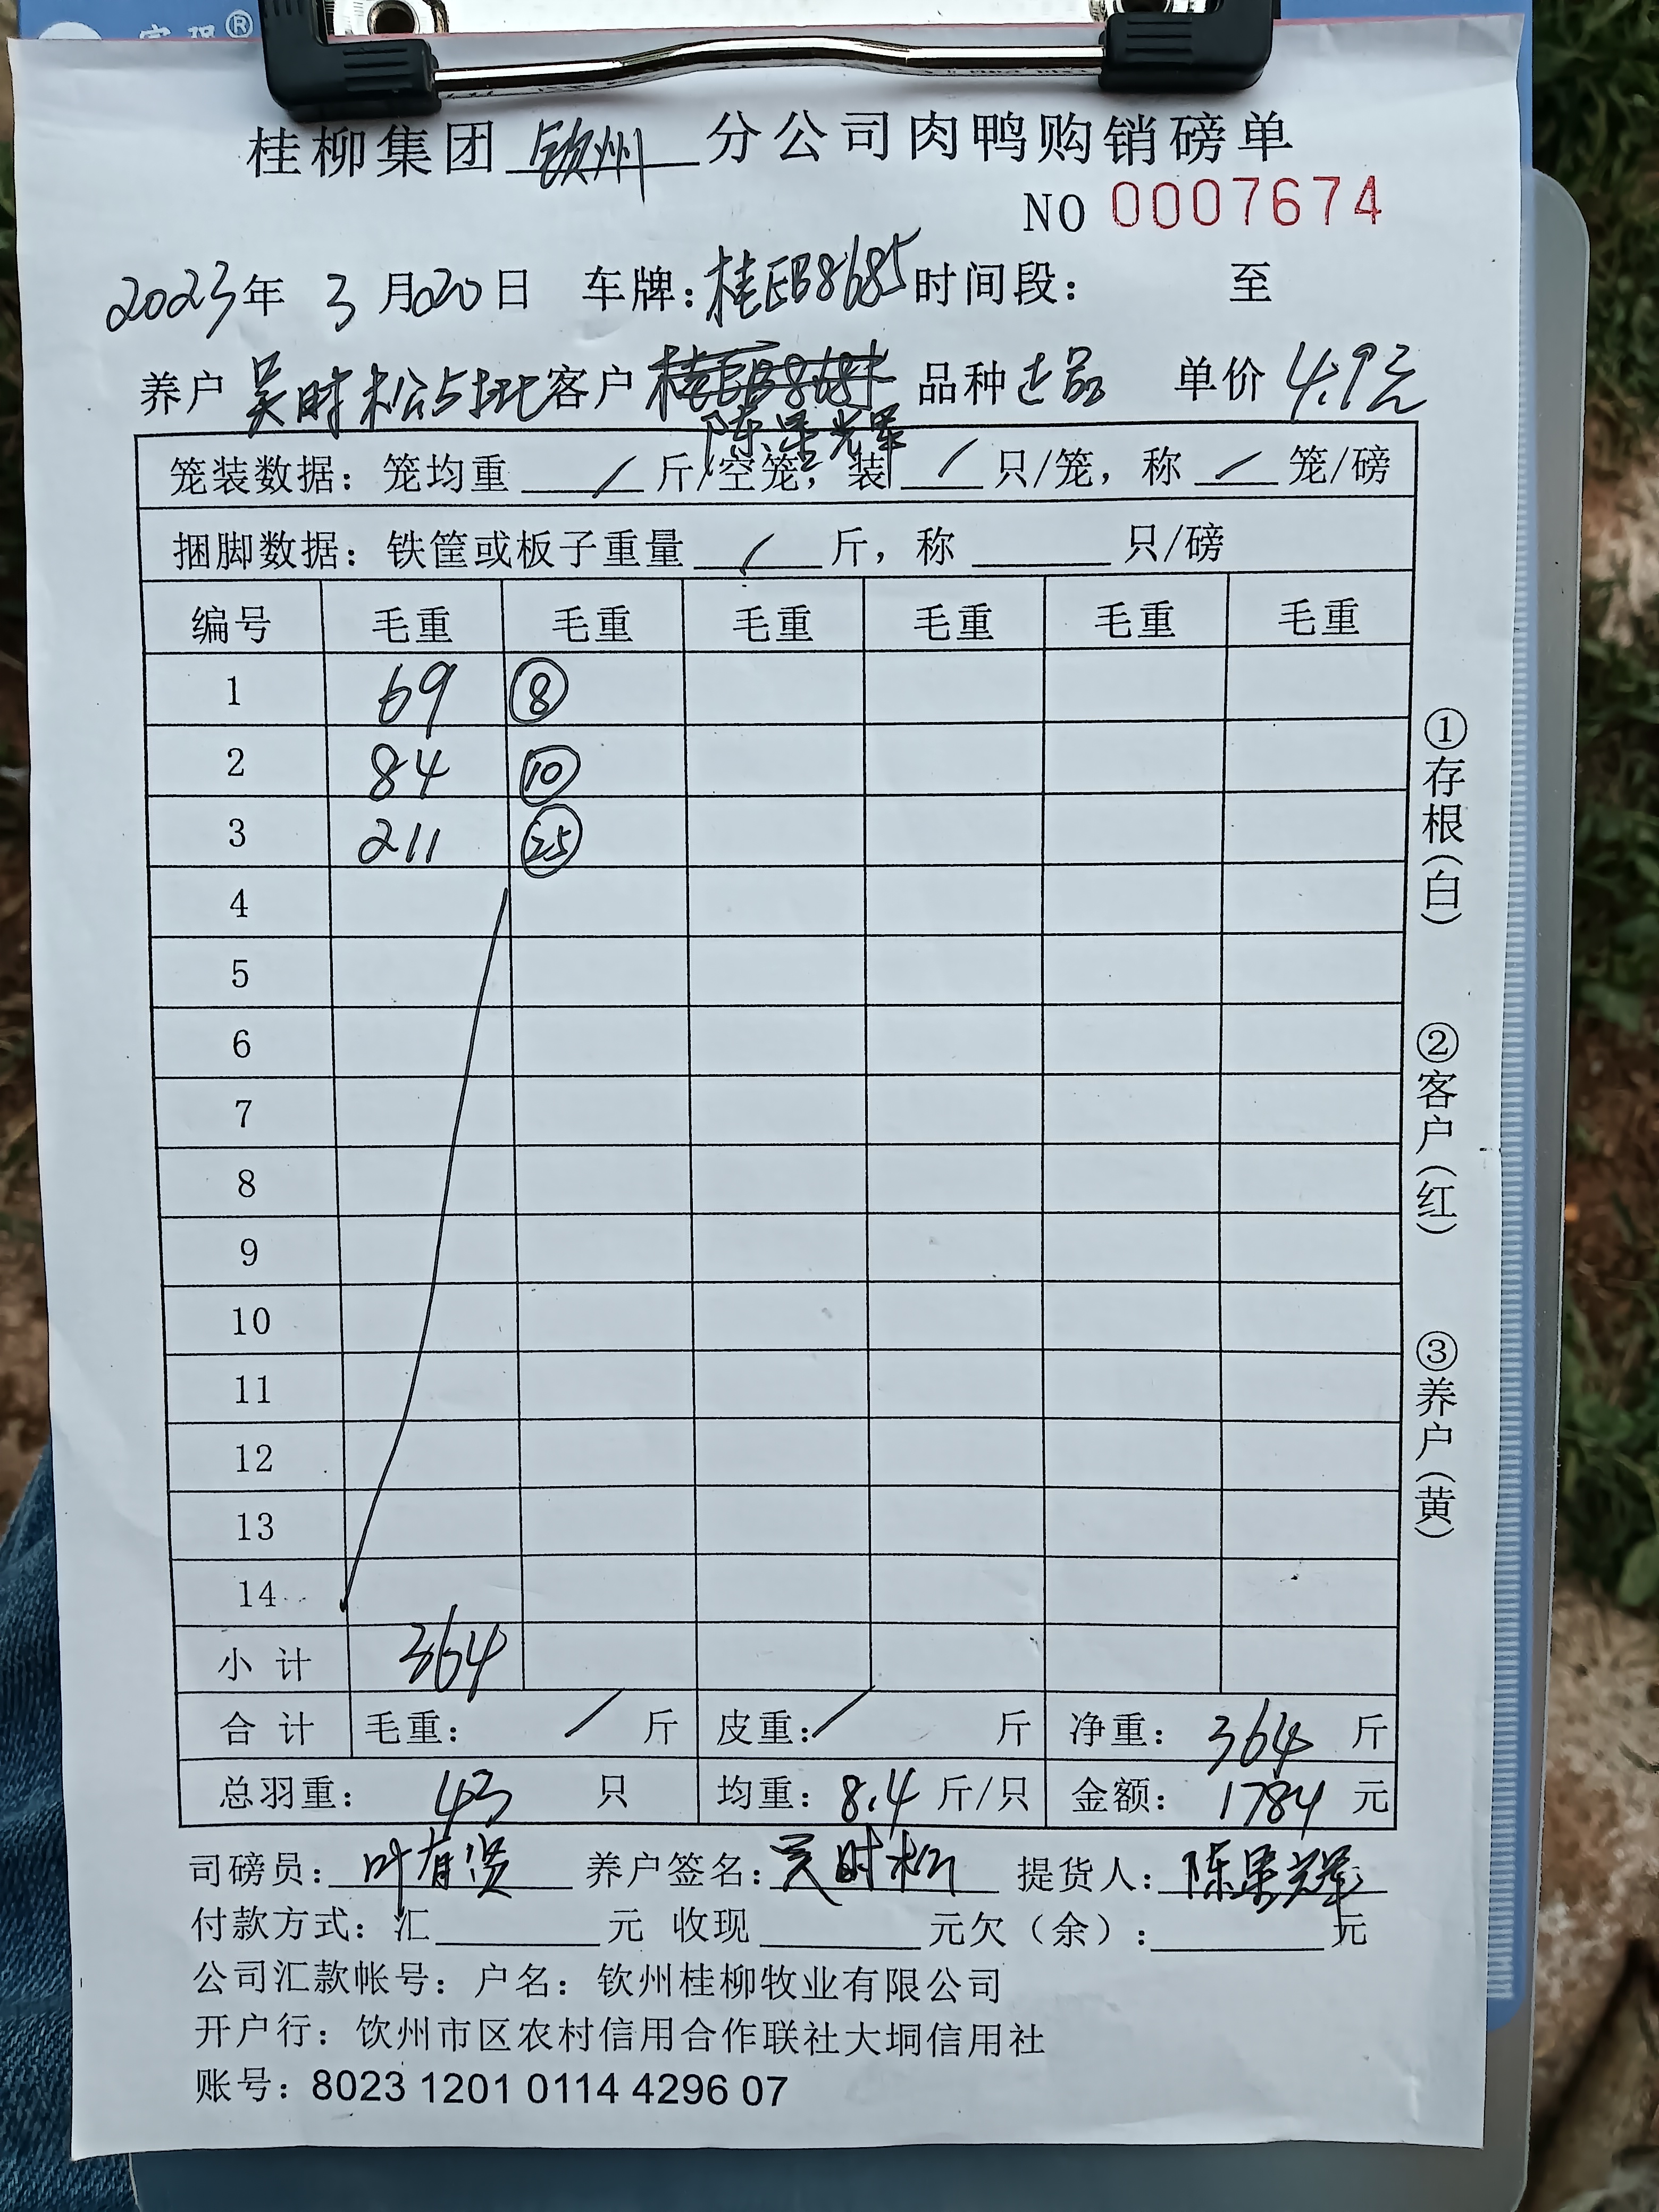 桂柳集团 钦州 分公司肉鸭购销磅单
NO 0007674
2023年 3 月20日 车牌:桂EB8685时间段: 至
养户 吴时松5批 客户 品种 正品 单价 4.9元
陈果光军
笼装数据: 笼均重 / 斤/空笼, 装 / 只/笼, 称 / 笼/磅
捆脚数据: 铁筐或板子重量 / 斤, 称 只/磅
编号 毛重 毛重 毛重 毛重 毛重 毛重
1 69 ⑧
2 84 ⑩
3 211 ㉕
4
5
6
7
8
9
10
11
12
13
14
小计 364
合计 毛重: / 斤 皮重: / 斤 净重: 364 斤
总羽重: 43 只 均重: 8.4 斤/只 金额: 1784 元
司磅员: 叶有贤 养户签名: 吴时松 提货人: 陈果辉
付款方式: 汇 元 收现 元欠（余）: 元
公司汇款帐号: 户名: 钦州桂柳牧业有限公司
开户行: 钦州市区农村信用合作联社大垌信用社
账号: 8023 1201 0114 4296 07
①存根(白)
②客户(红)
③养户(黄)